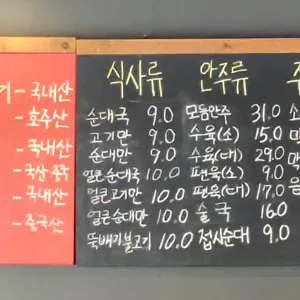 기 - 국내산
- 호주산
- 국내산
- 국산
- 국내산
- 중국산
식사류
순대국 9.0
고기만 9.0
순대만 9.0
얼큰순대국 10.0
얼큰고기만 10.0
얼큰순대만 10.0
뚝배기불고기 10.0
안주류
모듬안주 31.0
수육(소) 15.0
수육(대) 29.0
편육(소) 9.0
편육(대) 17.0
술국 16.0
접시순대 9.0
주
소
음